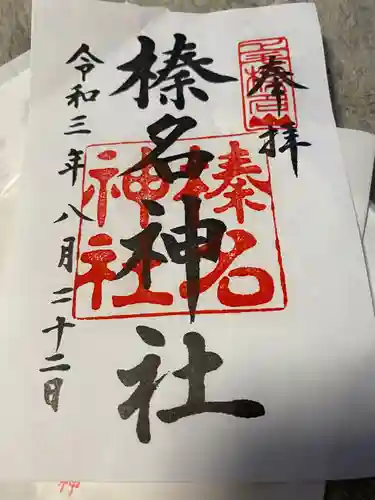 奉拝
榛名神社
榛名神社
令和三年八月二十二日